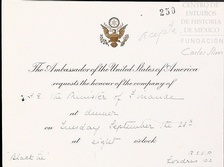 250
CENTRO DE
ESTUDIOS
DE HISTORIA
DE MEXICO
FUNDACIÓN
Carlos Slim
The Ambassador of the United States of America
requests the honour of the company of
The Minister of
at dinner
on Tuesday September the 28th
at eight o'clock
Black tie
R.S.V.P.
Londres